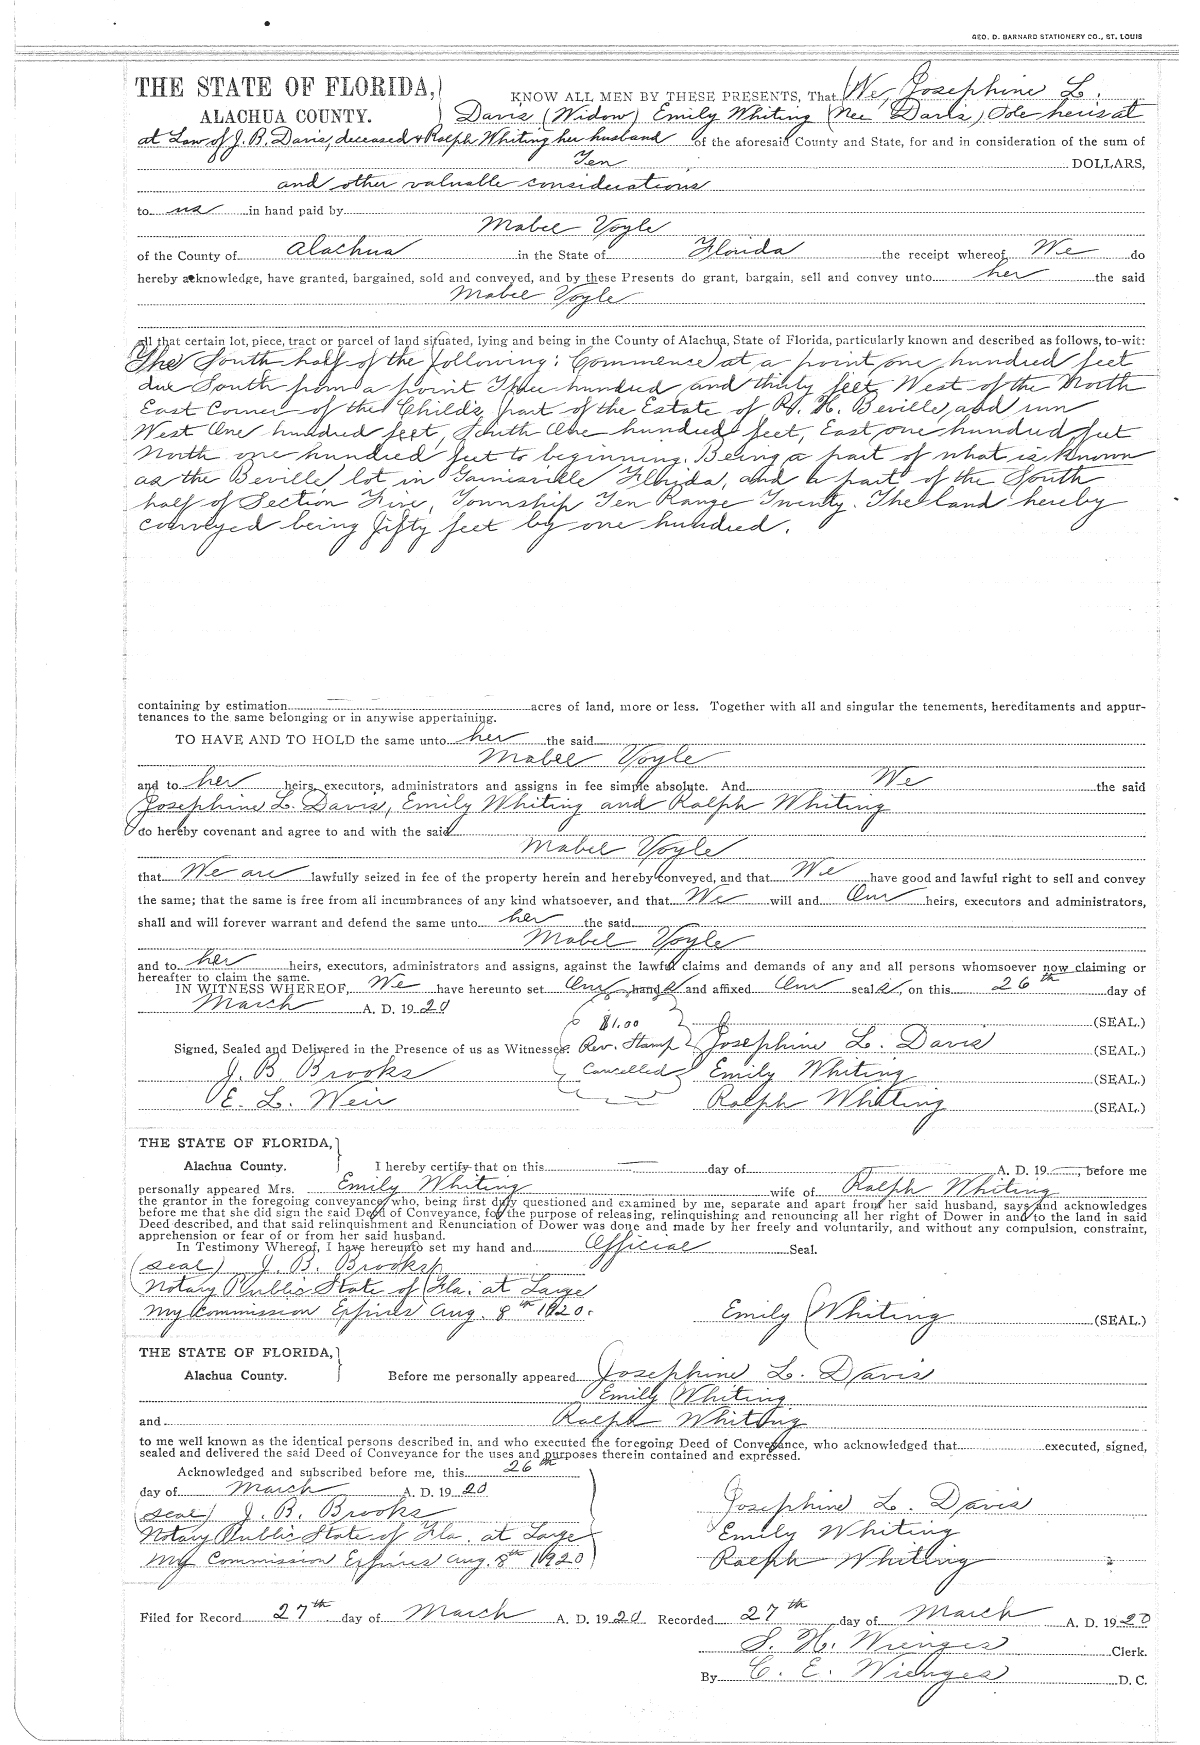 GEO. D. BARNARD STATIONERY CO., ST. LOUIS
THE STATE OF FLORIDA,
KNOW ALL MEN BY THESE PRESENTS, That We, Josephine L.
ALACHUA COUNTY.
Davis (Widow) Emily Whiting (Nee Davis) Sole heirs at
at Law of J. B. Davis, deceased & Ralph Whiting her husband of the aforesaid County and State, for and in consideration of the sum of
Ten DOLLARS,
and other valuable considerations
to us in hand paid by
Mabel Voyle
of the County of Alachua in the State of Florida the receipt whereof We do
hereby acknowledge, have granted, bargained, sold and conveyed, and by these Presents do grant, bargain, sell and convey unto her the said
Mabel Voyle
all that certain lot, piece, tract or parcel of land situated, lying and being in the County of Alachua, State of Florida, particularly known and described as follows, to-wit:
The South half of the following: Commence at a point one hundred feet
due South from a point Three hundred and thirty feet West of the North
East Corner of the Child's part of the Estate of R. H. Beville, and run
West One hundred feet, South One hundred feet, East one hundred feet
North one hundred feet to beginning. Being a part of what is known
as the Beville lot in Gainesville Florida, and a part of the South
half of Section Five, Township Ten Range Twenty. The land hereby
conveyed being fifty feet by one hundred.
containing by estimation acres of land, more or less. Together with all and singular the tenements, hereditaments and appur-
tenances to the same belonging or in anywise appertaining.
TO HAVE AND TO HOLD the same unto her the said
Mabel Voyle
and to her heirs, executors, administrators and assigns in fee simple absolute. And We the said
Josephine L. Davis, Emily Whiting and Ralph Whiting
do hereby covenant and agree to and with the said
Mabel Voyle
that We are lawfully seized in fee of the property herein and hereby conveyed, and that We have good and lawful right to sell and convey
the same; that the same is free from all incumbrances of any kind whatsoever, and that We will and Our heirs, executors and administrators,
shall and will forever warrant and defend the same unto her the said
Mabel Voyle
and to her heirs, executors, administrators and assigns, against the lawful claims and demands of any and all persons whomsoever now claiming or
hereafter to claim the same.
IN WITNESS WHEREOF, We have hereunto set Our hands and affixed Our seals, on this 26th day of
March A. D. 1920
$1.00 (SEAL.)
Signed, Sealed and Delivered in the Presence of us as Witnesses: Rev. Stamp Josephine L. Davis (SEAL.)
J. B. Brooks Cancelled Emily Whiting (SEAL.)
E. L. Weir Ralph Whiting (SEAL.)
THE STATE OF FLORIDA,
Alachua County. I hereby certify that on this day of A. D. 19 , before me
personally appeared Mrs. Emily Whiting wife of Ralph Whiting
the grantor in the foregoing conveyance, who, being first duly questioned and examined by me, separate and apart from her said husband, says and acknowledges
before me that she did sign the said Deed of Conveyance, for the purpose of releasing, relinquishing and renouncing all her right of Dower in and to the land in said
Deed described, and that said relinquishment and Renunciation of Dower was done and made by her freely and voluntarily, and without any compulsion, constraint,
apprehension or fear of or from her said husband.
In Testimony Whereof, I have hereunto set my hand and Official Seal.
(seal) J. B. Brooks
Notary Public State of Fla. at Large
My Commission Expires Aug. 8th 1920. Emily Whiting (SEAL.)
THE STATE OF FLORIDA,
Alachua County. Before me personally appeared Josephine L. Davis
Emily Whiting
and Ralph Whiting
to me well known as the identical persons described in, and who executed the foregoing Deed of Conveyance, who acknowledged that executed, signed,
sealed and delivered the said Deed of Conveyance for the uses and purposes therein contained and expressed.
Acknowledged and subscribed before me, this 26th
day of March A. D. 1920
(seal) J. B. Brooks Josephine L. Davis
Notary Public State of Fla. at Large Emily Whiting
My Commission Expires Aug. 8th 1920 Ralph Whiting
Filed for Record 27th day of March A. D. 1920 Recorded 27th day of March A. D. 1920
S. H. Wienges Clerk.
By C. E. Wienges D. C.